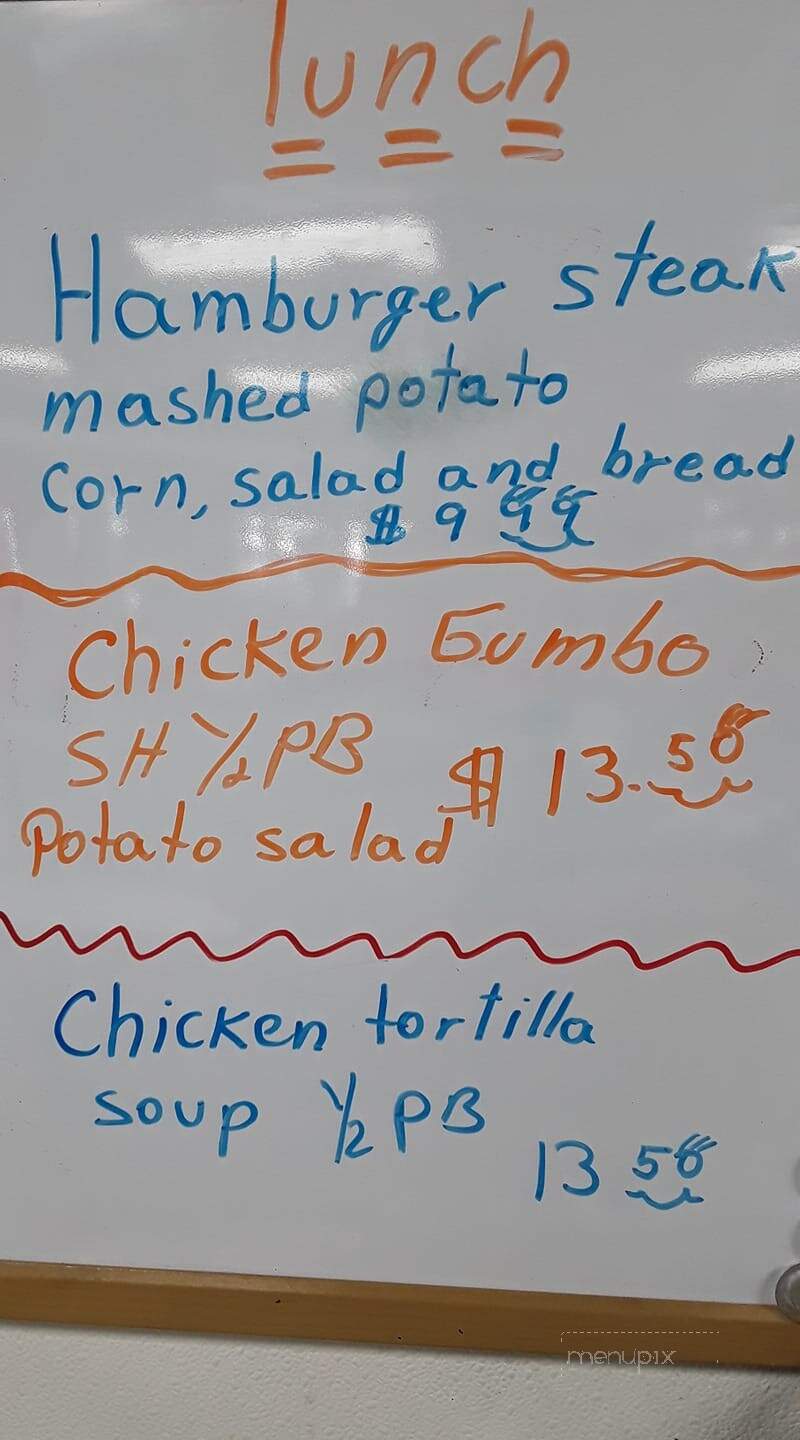 lunch
Hamburger steak
mashed potato
corn, salad and bread
$ 9 99
Chicken Gumbo
SH 1/2 PB $ 13.50
Potato salad
Chicken tortilla
soup 1/2 PB
13 50
menupix